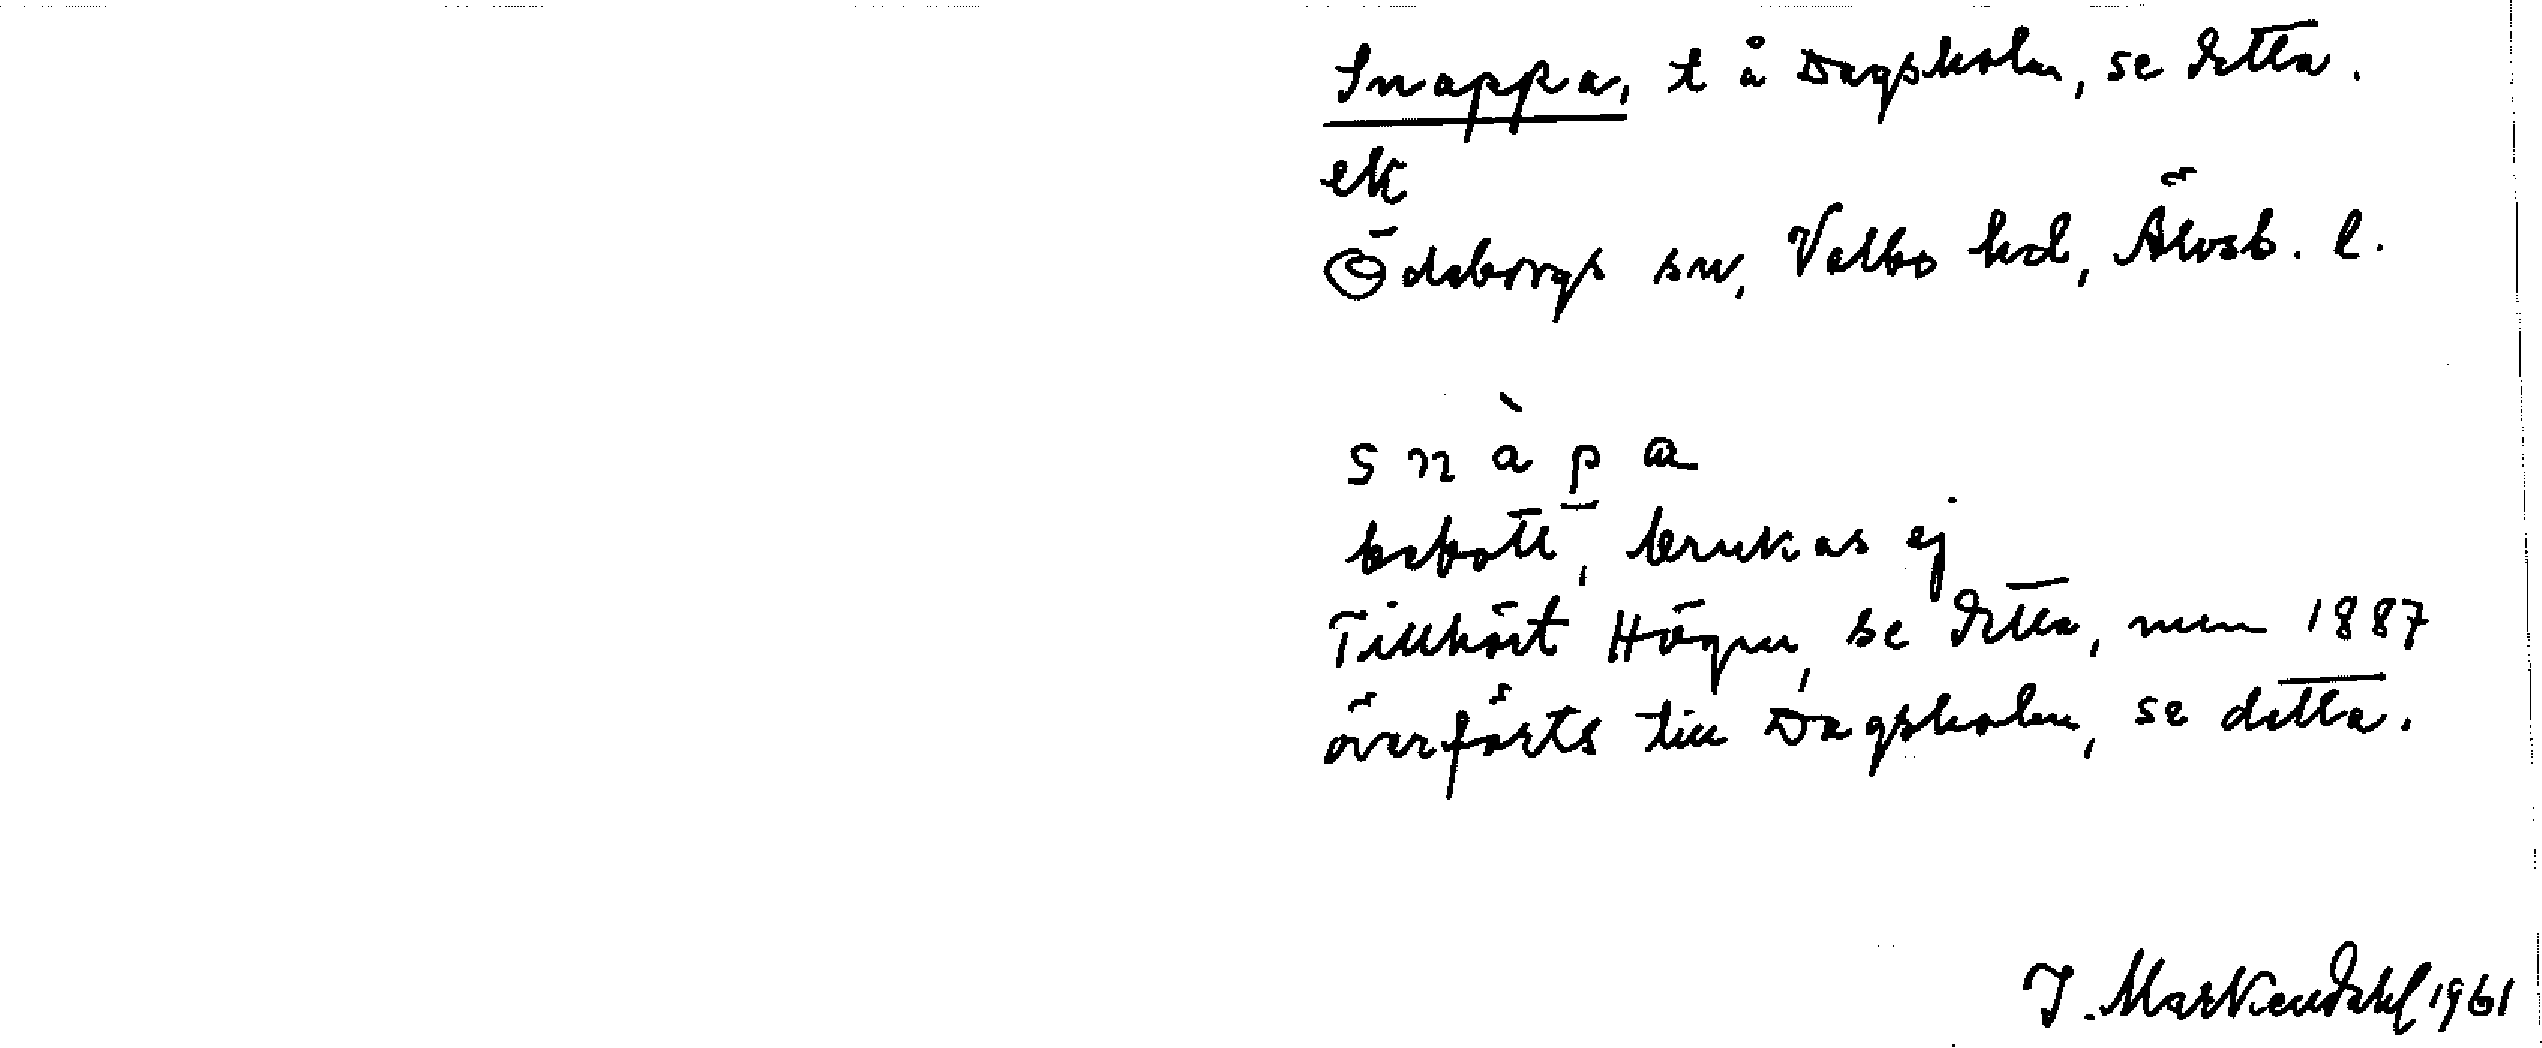 Snappa, t å Dagsholm, se detta.
ek
Ödeborgs sn, Valbo hd, Älvsb. l.
snàpa
bebott, brukas ej
Tillhört Högen, se detta, men 1887
överförts till Dagsholm, se detta.
J. Markendahl 1961